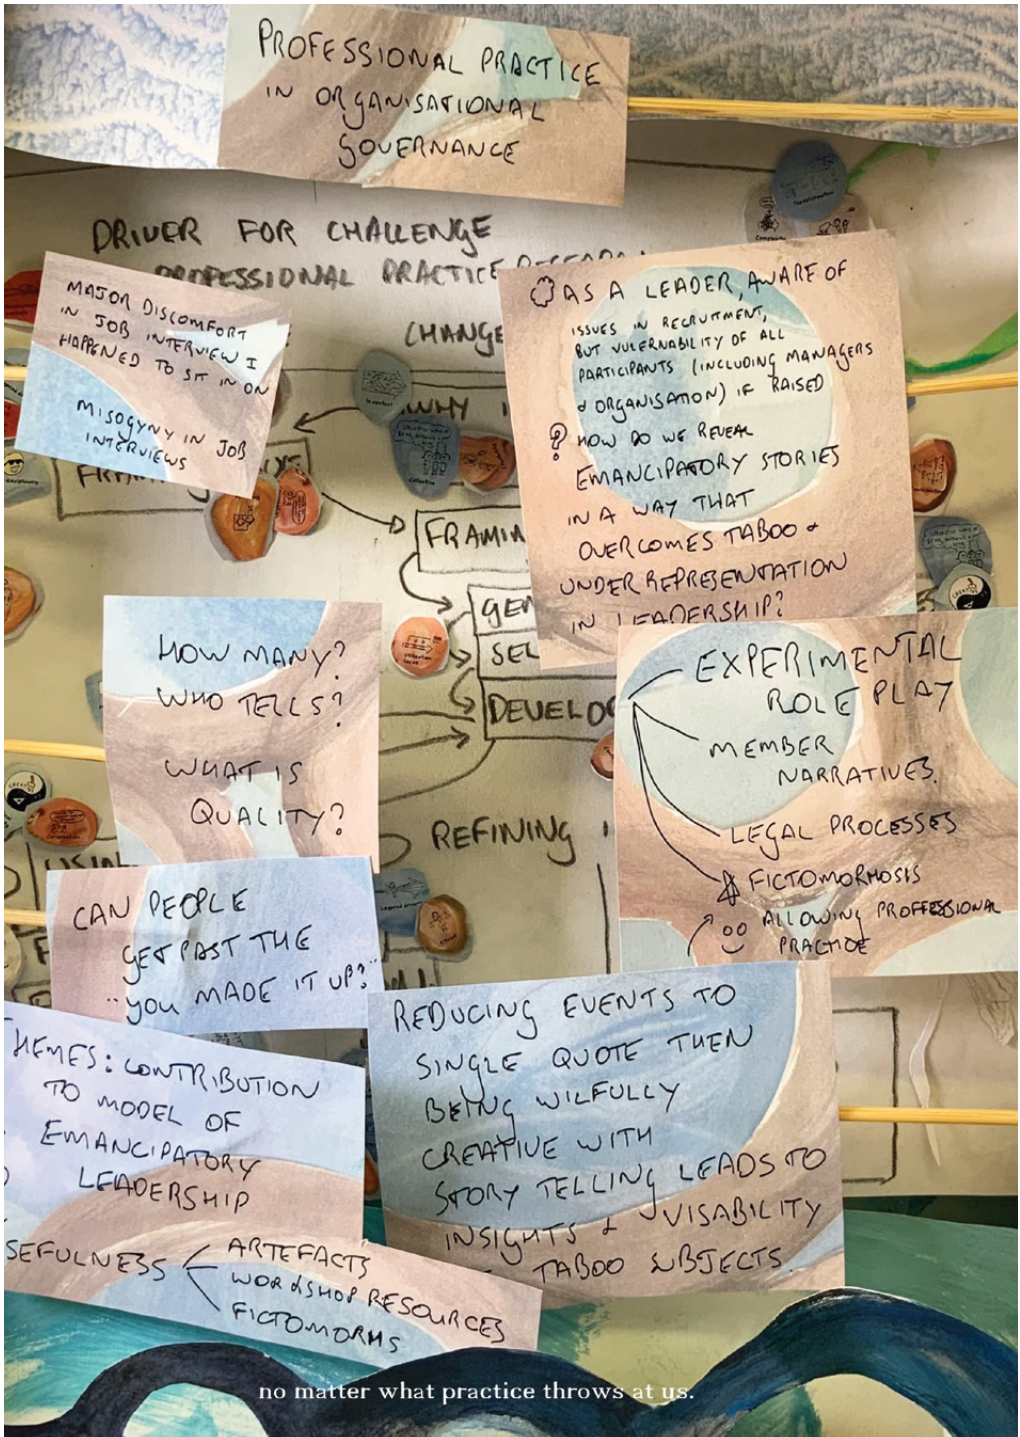 PROFESSIONAL PRACTICE
IN ORGANISATIONAL
GOVERNANCE
DRIVER FOR CHALLENGE
PROFESSIONAL PRACTICE
CHANGE
WHY
MAJOR DISCOMFORT
IN JOB INTERVIEW I
HAPPENED TO SIT IN ON
MISOGYNY IN JOB
INTERVIEWS
AS A LEADER, AWARE OF
ISSUES IN RECRUITMENT,
BUT VULERNABILITY OF ALL
PARTICIPANTS (INCLUDING MANAGERS
& ORGANISATION) IF RAISED
? HOW DO WE REVEAL
EMANCIPATORY STORIES
IN A WAY THAT
OVERCOMES TABOO &
UNDERREPRESENTATION
IN LEADERSHIP?
FRAMIN
GEN
SEL
DEVELO
REFINING
HOW MANY?
WHO TELLS?
WHAT IS
QUALITY?
EXPERIMENTAL
ROLE PLAY
MEMBER
NARRATIVES.
LEGAL PROCESSES
FICTOMORHOSIS
ALLOWING PROFFESSIONAL
PRACTICE
USIN
CAN PEOPLE
GET PAST THE
"YOU MADE IT UP?"
HEMES: CONTRIBUTION
TO MODEL OF
EMANCIPATORY
LEADERSHIP
SEFULNESS
ARTEFACTS
WORKSHOP RESOURCES
FICTOMORHS
REDUCING EVENTS TO
SINGLE QUOTE THEN
BEING WILFULLY
CREATIVE WITH
STORY TELLING LEADS TO
INSIGHTS & VISABILITY
TABOO SUBJECTS.
no matter what practice throws at us.